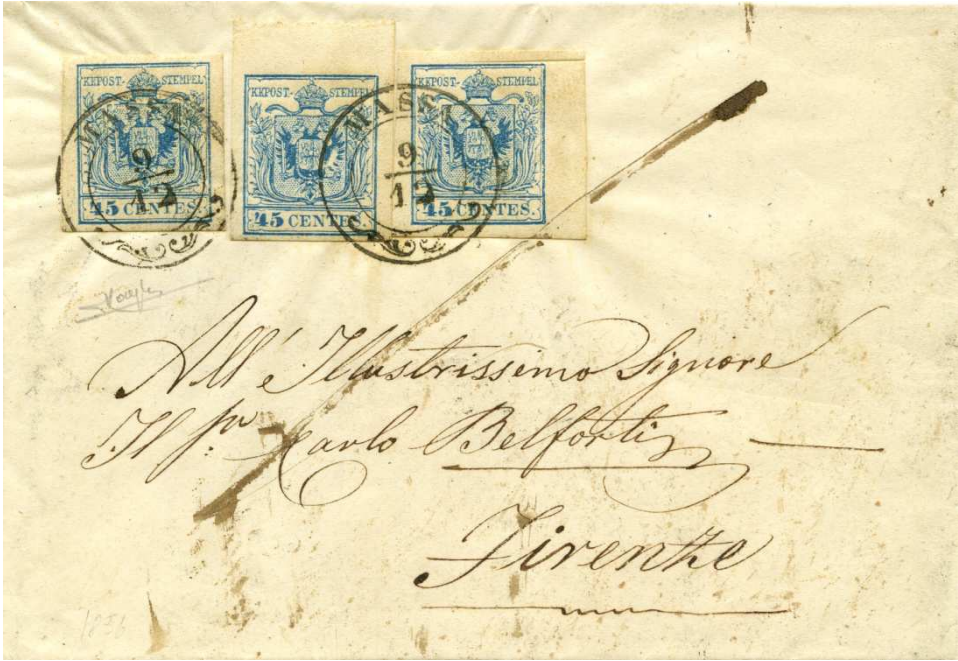 KKPOST- STEMPEL
45 CENTES.
KKPOST- STEMPEL
45 CENTES.
KKPOST- STEMPEL
45 CENTES.
MASSA
9
12
MASSA
9
12
All' Illustrissimo Signore
Il Carlo Belforti
Firenze
1856